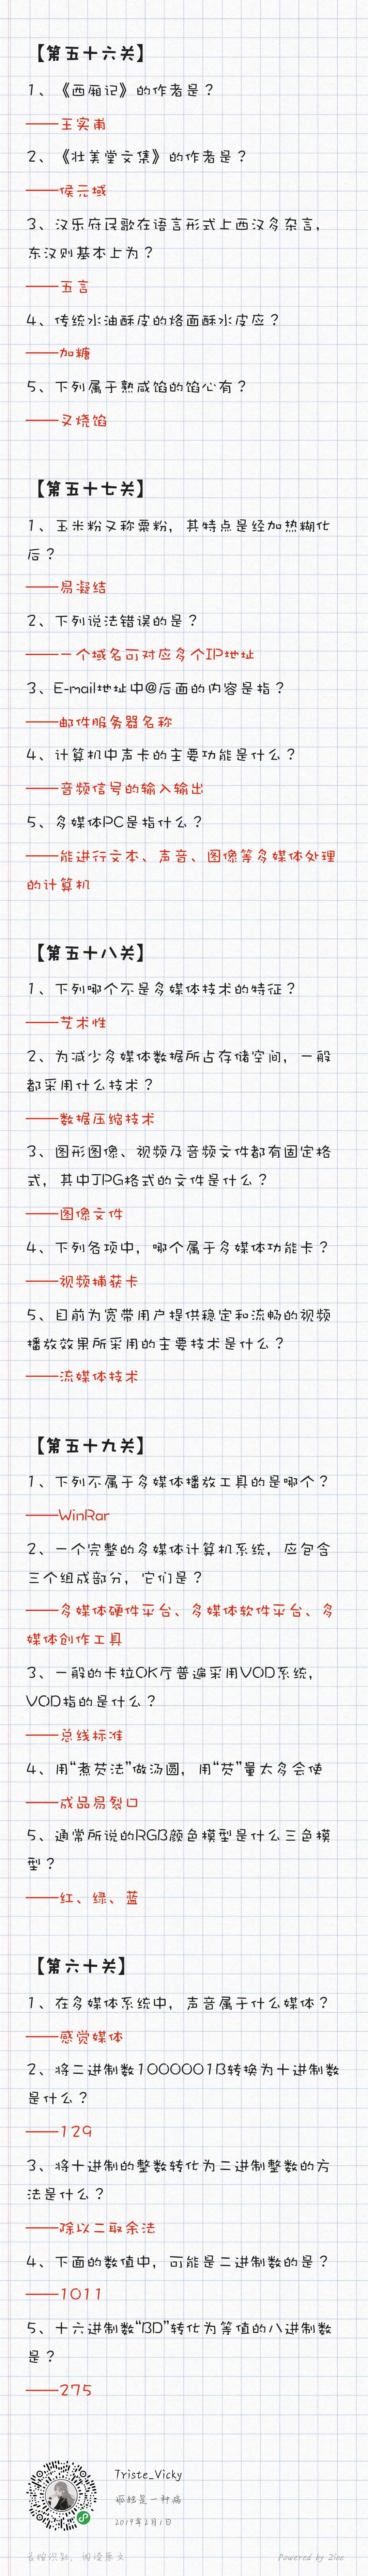 【第五十六关】
1、《西厢记》的作者是？
——王实甫
2、《壮美堂文集》的作者是？
——侯元域
3、汉乐府民歌在语言形式上西汉多杂言，
东汉则基本上为？
——五言
4、传统水油酥皮的烙面酥水皮应？
——加糖
5、下列属于熟咸馅的馅心有？
——叉烧馅
【第五十七关】
1、玉米粉又称粟粉，其特点是经加热糊化
后？
——易凝结
2、下列说法错误的是？
——一个域名可对应多个IP地址
3、E-mail地址中@后面的内容是指？
——邮件服务器名称
4、计算机中声卡的主要功能是什么？
——音频信号的输入输出
5、多媒体PC是指什么？
——能进行文本、声音、图像等多媒体处理
的计算机
【第五十八关】
1、下列哪个不是多媒体技术的特征？
——艺术性
2、为减少多媒体数据所占存储空间，一般
都采用什么技术？
——数据压缩技术
3、图形图像、视频及音频文件都有固定格
式，其中JPG格式的文件是什么？
——图像文件
4、下列各项中，哪个属于多媒体功能卡？
——视频捕获卡
5、目前为宽带用户提供稳定和流畅的视频
播放效果所采用的主要技术是什么？
——流媒体技术
【第五十九关】
1、下列不属于多媒体播放工具的是哪个？
——WinRar
2、一个完整的多媒体计算机系统，应包含
三个组成部分，它们是？
——多媒体硬件平台、多媒体软件平台、多
媒体创作工具
3、一般的卡拉OK厅普遍采用VOD系统，
VOD指的是什么？
——总线标准
4、用“煮芡法”做汤圆，用“芡”量太多会使
——成品易裂口
5、通常所说的RGB颜色模型是什么三色模
型？
——红、绿、蓝
【第六十关】
1、在多媒体系统中，声音属于什么媒体？
——感觉媒体
2、将二进制数1000001B转换为十进制数
是什么？
——129
3、将十进制的整数转化为二进制整数的方
法是什么？
——除以二取余法
4、下面的数值中，可能是二进制数的是？
——1011
5、十六进制数“BD”转化为等值的八进制数
是？
——275
Triste_Vicky
孤独是一种病
2019年2月1日
长按识别，阅读原文
Powered by Zine